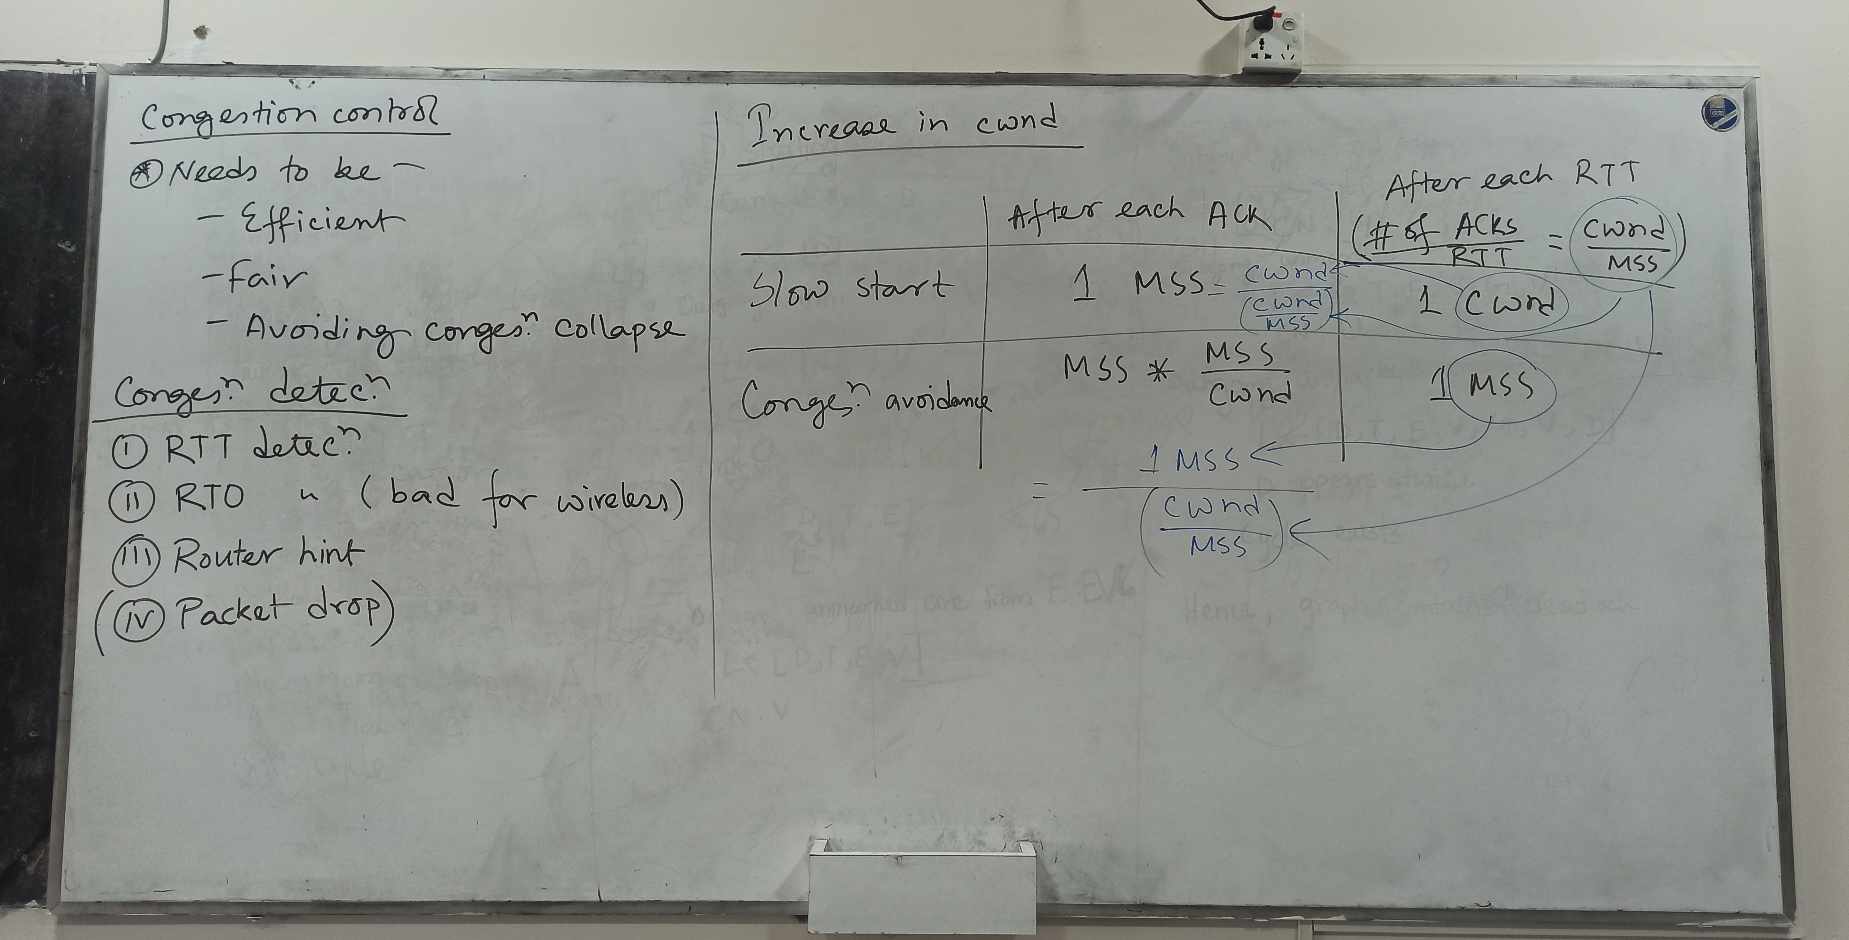 Congestion control
* Needs to be -
- Efficient
- fair
- Avoiding conges.ⁿ collapse
Conges.ⁿ detec.ⁿ
(I) RTT detec.ⁿ
(II) RTO " (bad for wireless)
(III) Router hint
((IV) Packet drop)
Increase in cwnd
After each ACK
After each RTT
(# of ACKs / RTT = cwnd / MSS)
Slow start
1 MSS = cwnd / (cwnd / MSS)
1 cwnd
Conges.ⁿ avoidance
MSS * MSS / cwnd
1 MSS
= 1 MSS / (cwnd / MSS)